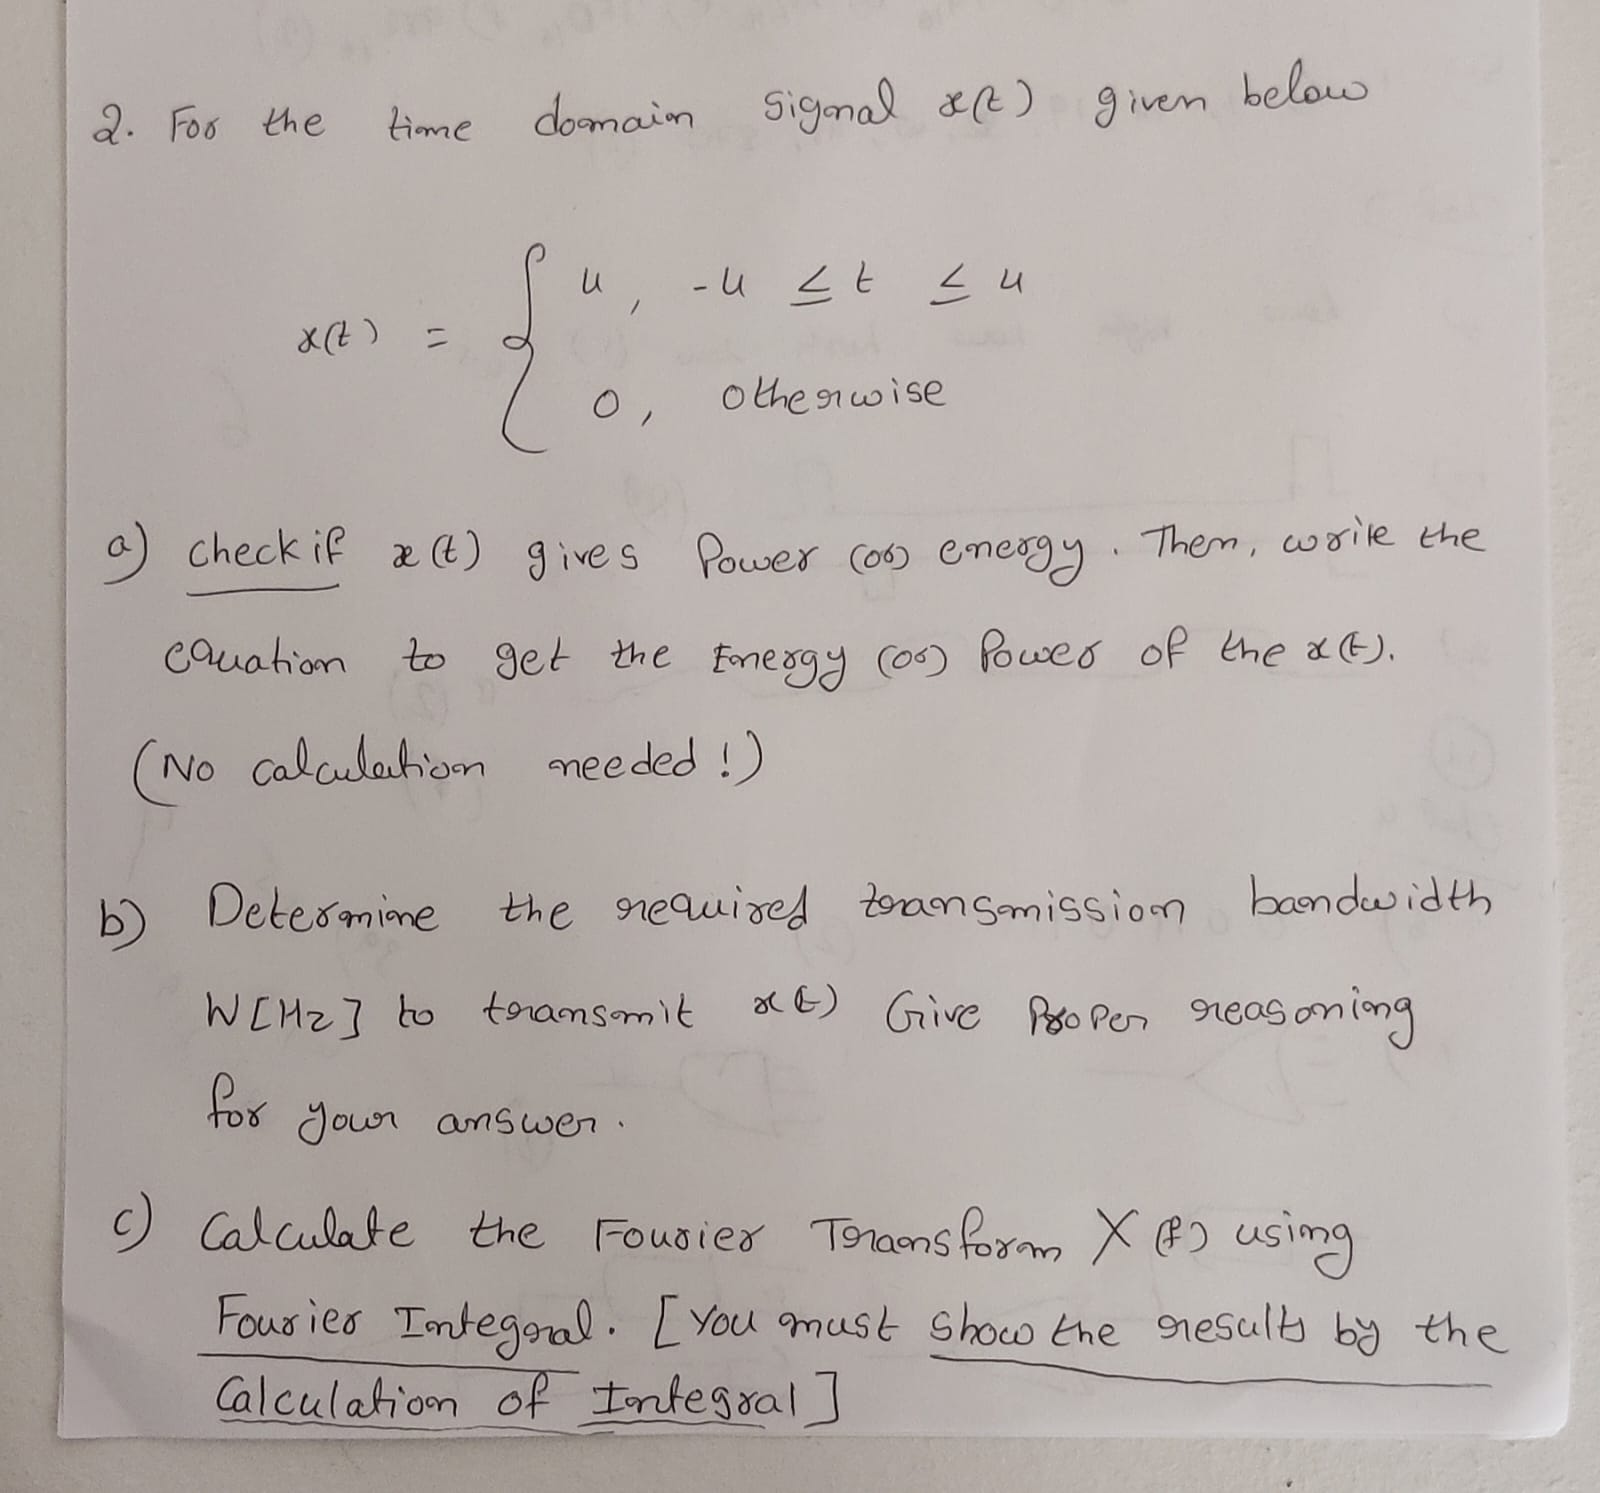 2. For the time domain signal x(t) given below
x(t) = { u, -u ≤ t ≤ u
0, otherwise
a) check if x(t) gives Power (or) energy. Then, write the
equation to get the Energy (or) Power of the x(t).
(No calculation needed!)
b) Determine the required transmission bandwidth
W[Hz] to transmit x(t) Give Proper reasoning
for your answer.
c) Calculate the Fourier Transform X(f) using
Fourier Integral. [You must show the results by the
Calculation of Integral]